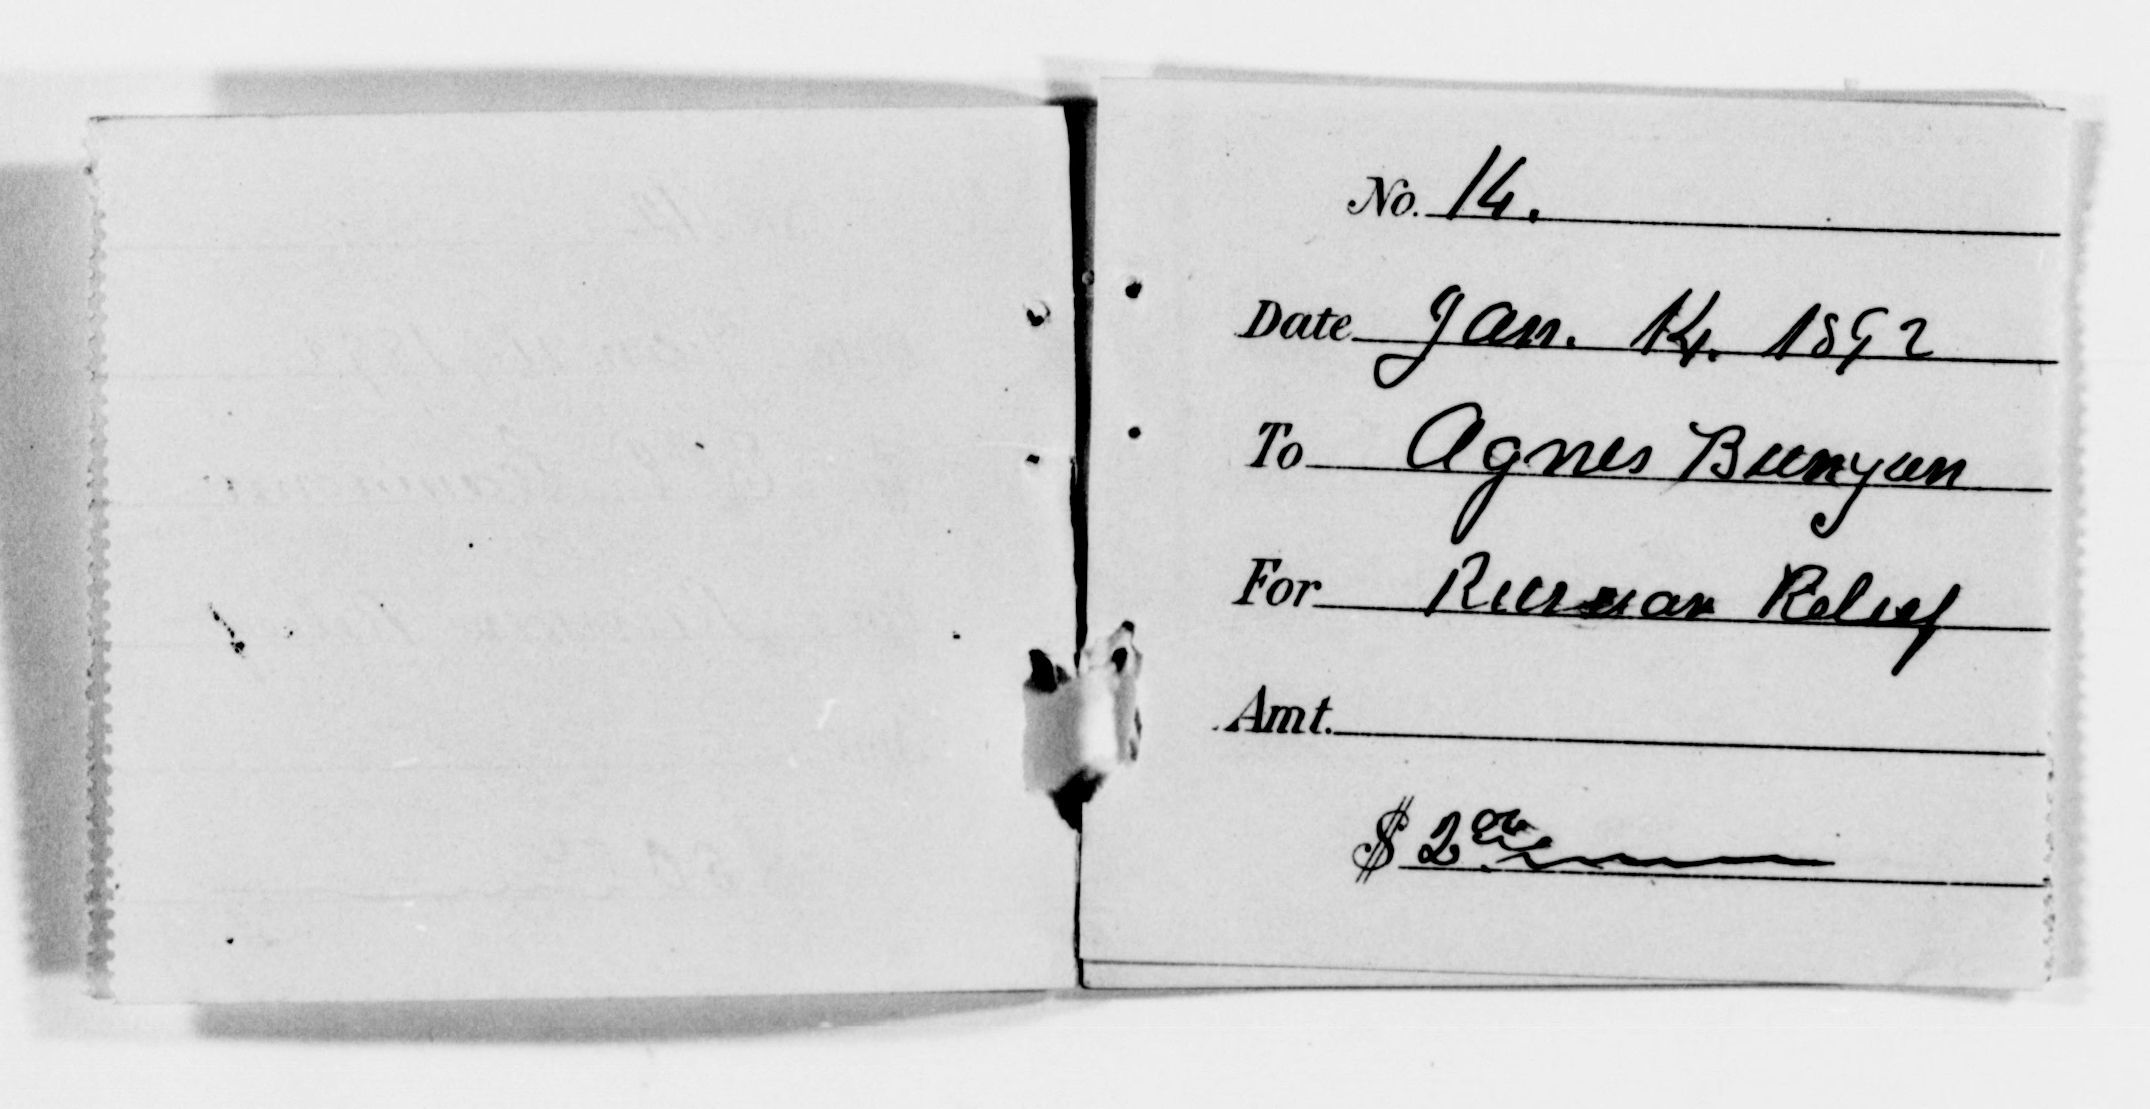 No. 14.
Date Jan. 14. 1892
To Agnes Bunyan
For Russian Relief
Amt.
$ 2 00